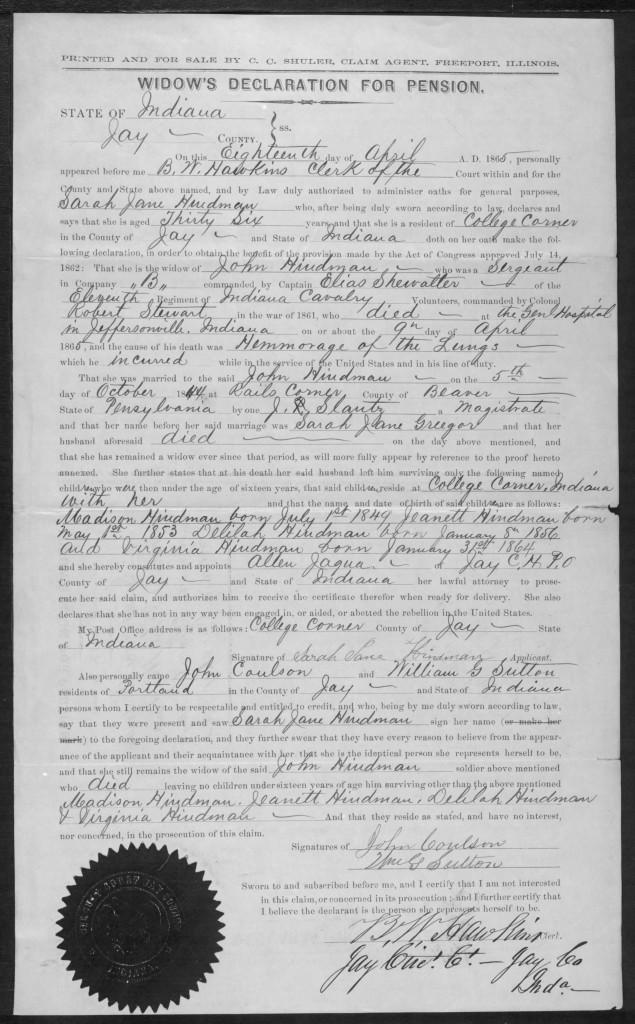 PRINTED AND FOR SALE BY C. C. SHULER, CLAIM AGENT, FREEPORT, ILLINOIS.
WIDOW'S DECLARATION FOR PENSION.
STATE OF Indiana
Jay COUNTY. } ss.
On this Eighteenth day of April A. D. 1865, personally
appeared before me B. W. Hawkins Clerk of the Court within and for the
County and State above named, and by Law duly authorized to administer oaths for general purposes,
Sarah Jane Hindman who, after being duly sworn according to law, declares and
says that she is aged Thirty Six years, and that she is a resident of College Corner
in the County of Jay and State of Indiana doth on her oath make the fol-
lowing declaration, in order to obtain the benefit of the provision made by the Act of Congress approved July 14,
1862: That she is the widow of John Hindman who was a Sergeant
in Company "B" commanded by Captain Elias Shewalter of the
Eleventh Regiment of Indiana Cavalry Volunteers, commanded by Colonel
Robert Stewart in the war of 1861, who died at the Genl Hospital
in Jeffersonville, Indiana on or about the 9th day of April
1865, and the cause of his death was Hemmorage of the Lungs
which he incurred while in the service of the United States and in his line of duty.
That she was married to the said John Hindman on the 5th
day of October 1844 at Corner County of Beaver
State of Pensylvania by one J. Slautz a Magistrate
and that her name before her said marriage was Sarah Jane Greegor and that her
husband aforesaid died on the day above mentioned, and
that she has remained a widow ever since that period, as will more fully appear by reference to the proof hereto
annexed. She further states that at his death her said husband left him surviving only the following named
children who were then under the age of sixteen years, that said children reside at College Corner, Indiana
with her and that the name and date of birth of said children are as follows:
Madison Hindman born July 1st 1849 Jeanett Hindman born
May 1853 Delilah Hindman born January 8th 1856
and Virginia Hindman born January 31st 1864
and she hereby constitutes and appoints Allen Jaqua a Jay C. H. P. O
County of Jay and State of Indiana her lawful attorney to prose-
cute her said claim, and authorizes him to receive the certificate therefor when ready for delivery. She also
declares that she has not in any way been engaged in, or aided, or abetted the rebellion in the United States.
My Post Office address is as follows: College Corner County of Jay State
of Indiana
Signature of Sarah Jane Hindman Applicant.
Also personally came John Coulson and William G Sutton
residents of Portland in the County of Jay and State of Indiana
persons whom I certify to be respectable and entitled to credit, and who, being by me duly sworn according to law,
say that they were present and saw Sarah Jane Hindman sign her name (or make her
mark) to the foregoing declaration, and they further swear that they have every reason to believe from the appear-
ance of the applicant and their acquaintance with her, that she is the identical person she represents herself to be,
and that she still remains the widow of the said John Hindman soldier above mentioned
who died leaving no children under sixteen years of age him surviving other than the above mentioned
Madison Hindman, Jeanett Hindman, Delilah Hindman
& Virginia Hindman And that they reside as stated, and have no interest,
nor concerned, in the prosecution of this claim.
Signatures of John Coulson
Wm G Sutton
Sworn to and subscribed before me, and I certify that I am not interested
in this claim, or concerned in its prosecution; and I further certify that
I believe the declarant is the person she represents herself to be.
B. W. Hawkins Clerk.
Jay Circt Ct - Jay Co
Inda